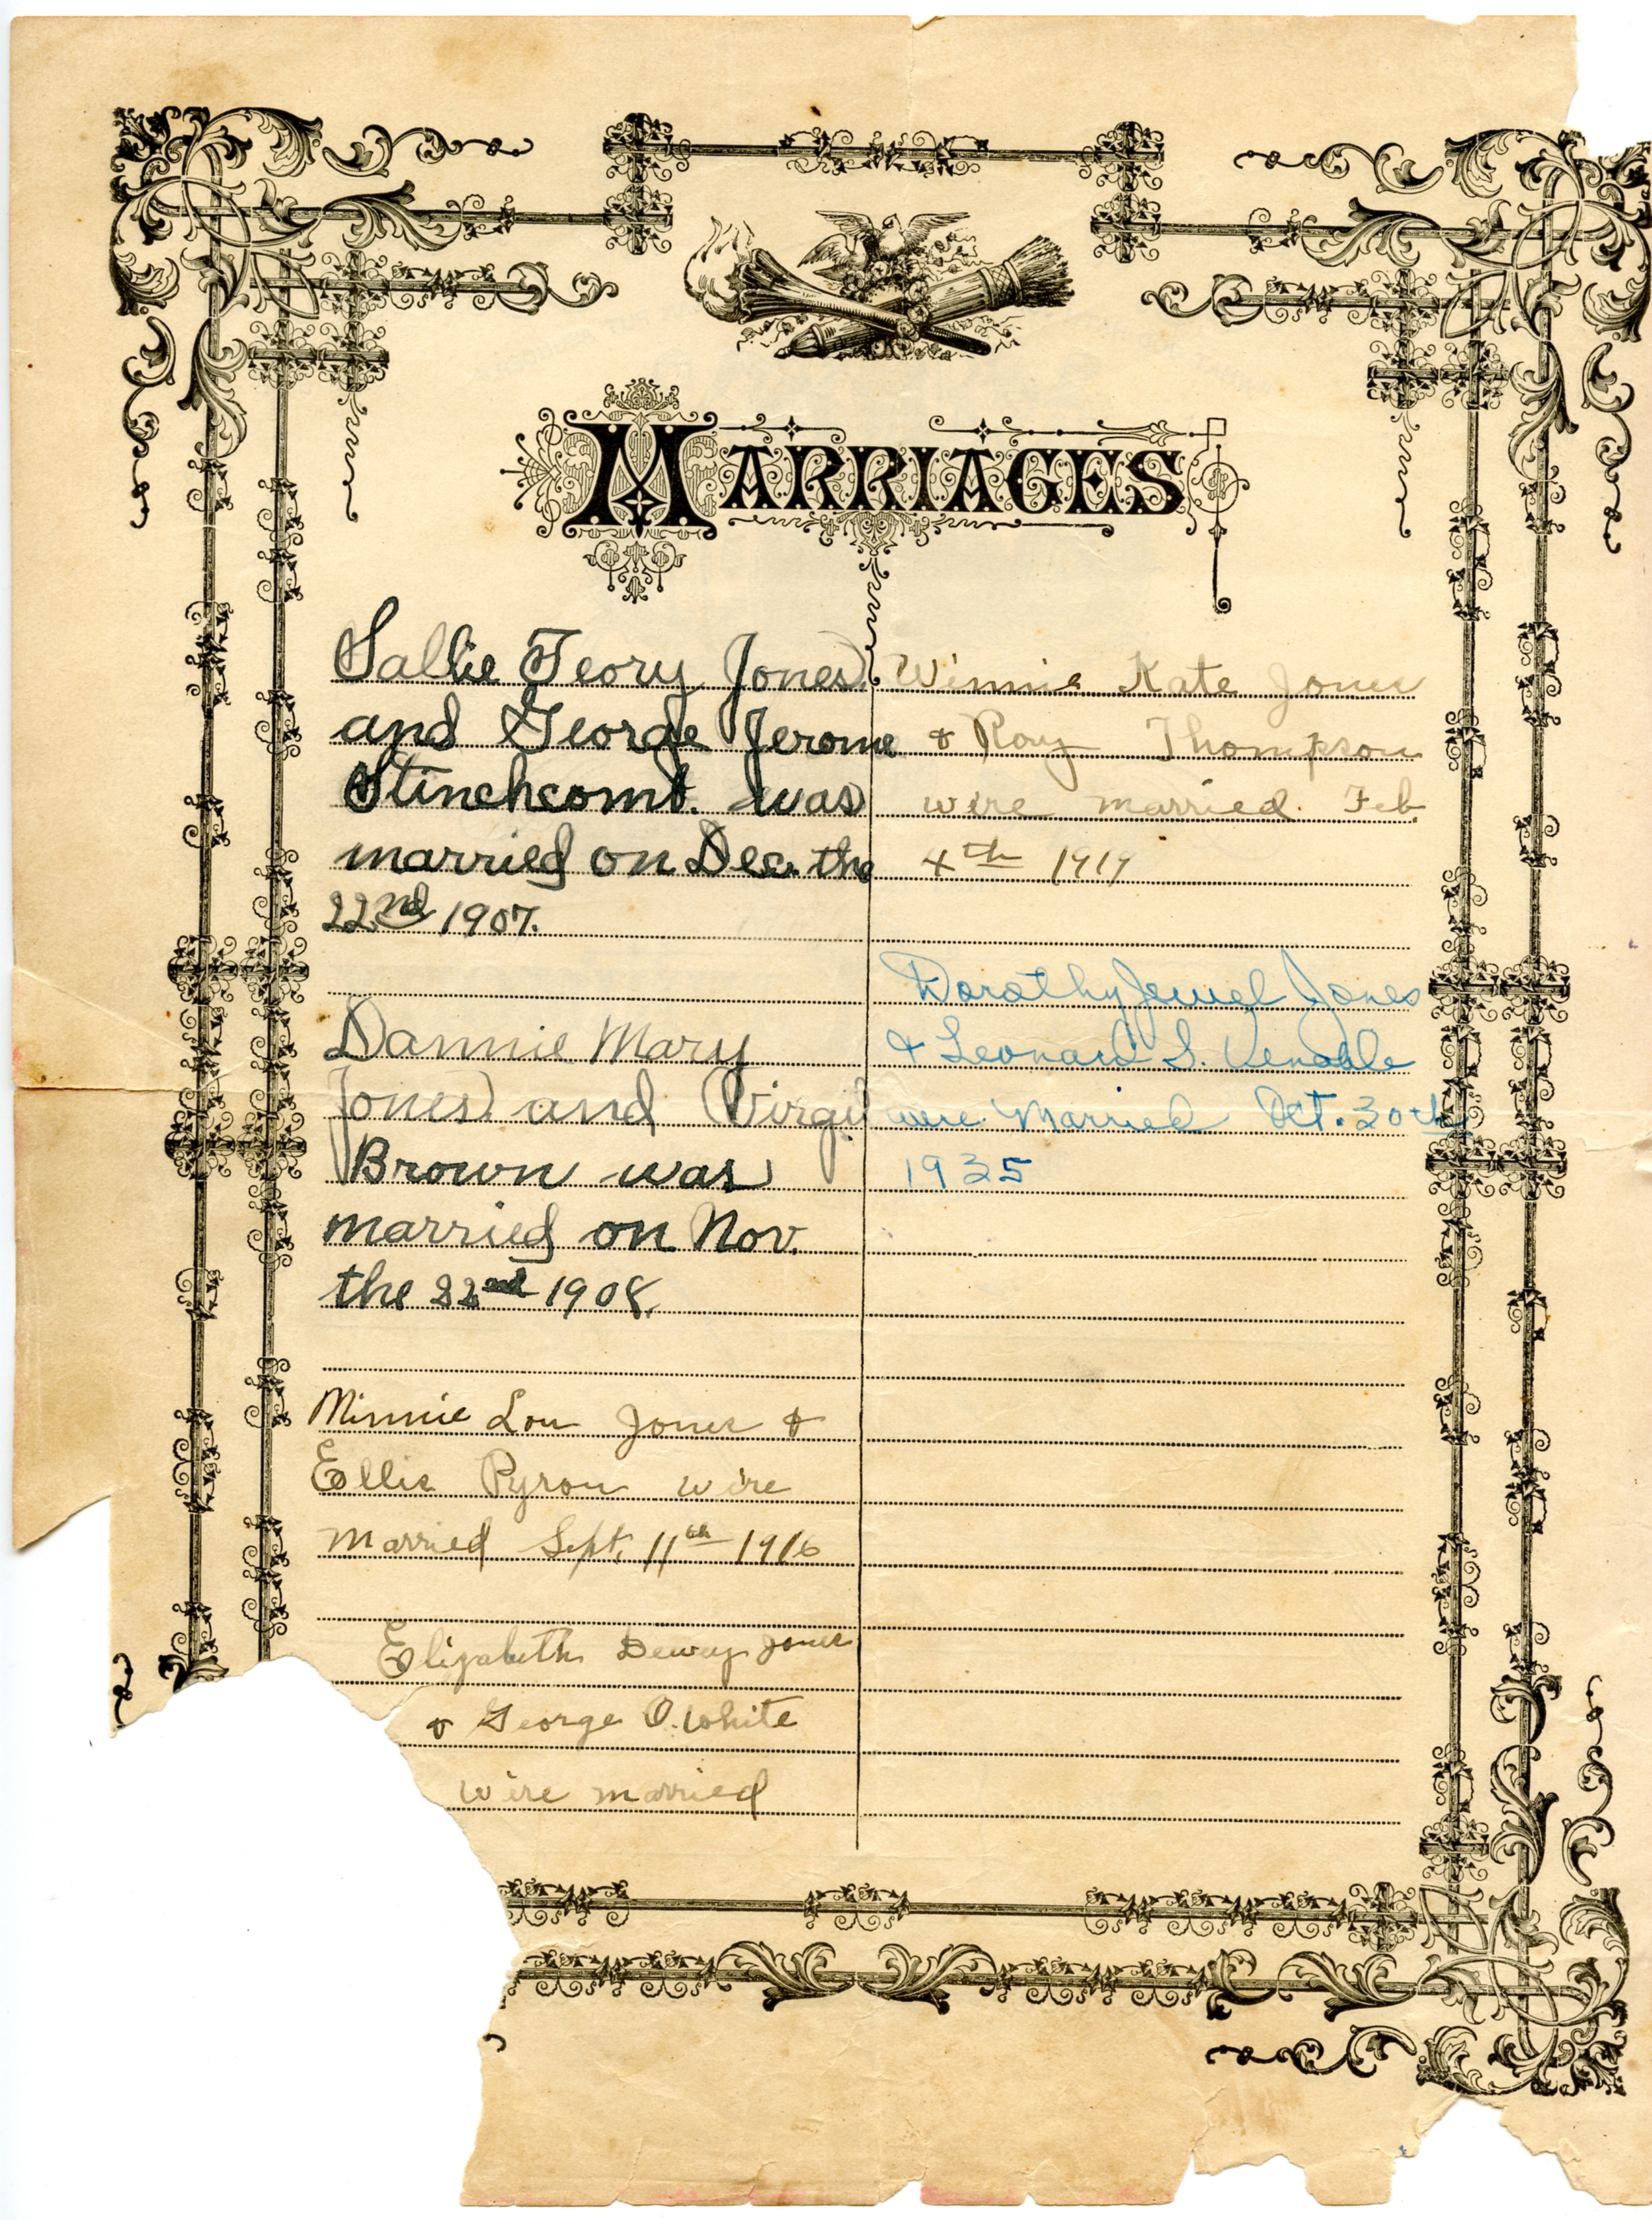 MARRIAGES
Sallie Teory Jones
and George Jerome
Stinchcomb. was
married on Dec. the
22nd 1907.
Dannie Mary
Jones and Virgil
Brown was
married on Nov.
the 22nd 1908.
Minnie Lou Jones &
Ellis Pyron were
married Sept. 11th 1916
Elizabeth Dewey Jones
& George O. White
were married
Winnie Kate Jones
& Roy Thompson
were married Feb.
4th 1919
Dorothy Jewel Jones
& Leonard S. Venable
were Married Oct. 30th
1935